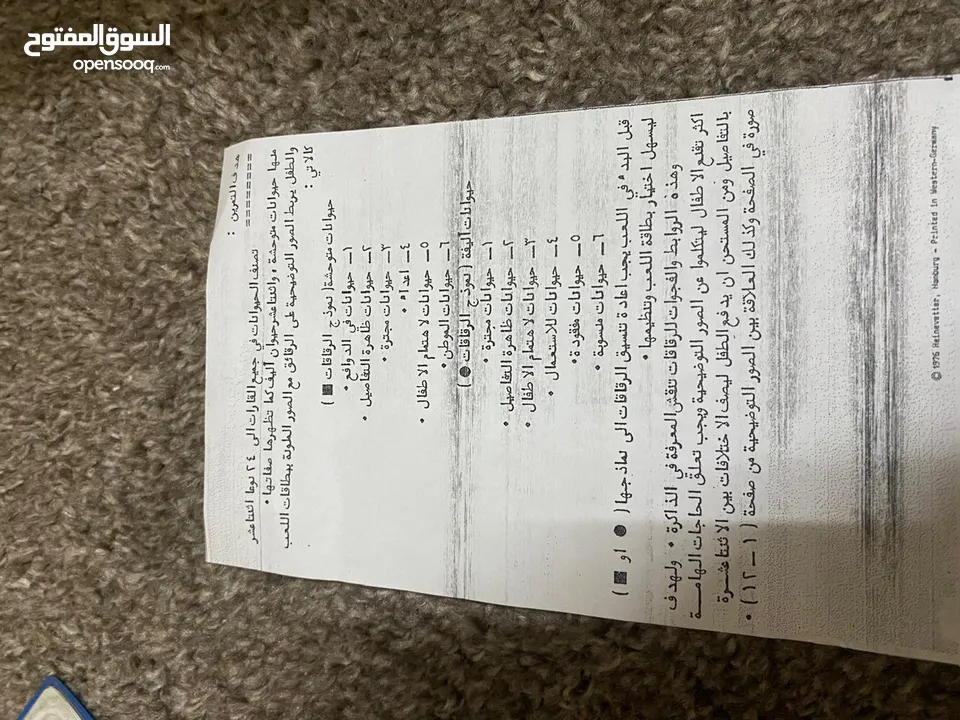 السوق المفتوح
opensooq.com
هدف التمرين :
تصنف الحيوانات في جميع القارات الى ٢٤ نوعا اثنتا عشر
منها حيوانات متوحشة ، واثنتا عشر حيوان أليف كما تظهرها صفاتها •
والطفل يربط الصور التوضيحية على الرقائق مع الصور الملونة ببطاقات اللعب
كالاتي :
حيوانات متوحشة ( نموذج الرقاقات ■ )
١ــ حيوانات في الدوافع •
٢ــ حيوانات ظاهرة التفاصيل •
٣ــ حيوانات مجترة •
٤ــ اعداء •
٥ــ حيوانات لاهتمام الاطفال •
٦ــ حيوانات الموطن •
حيوانات أليفة ( نموذج الرقاقات ● )
١ــ حيوانات مجترة •
٢ــ حيوانات ظاهرة التفاصيل •
٣ــ حيوانات لاهتمام الاطفال •
٤ــ حيوانات للاستعمال •
٥ــ حيوانات مفقودة •
٦ــ حيوانات منسوبة •
قبل البدء في اللعب يجب اعادة تنسيق الرقاقات الى نماذجها ( ● او ■ )
ليسهل اختيار بطاقة اللعب وتنظيمها •
وهذه الروابط والفجوات للرقاقات تنقش المعرفة في الذاكرة • ولهدف
اكثر تقنع الاطفال ليتكلموا عن الصور التوضيحية ويجب تعلق الحاجات الهامــة
بالتفاصيل ومن المستحن ان يدفع الطفل ليصف الاختلافات بين الاثنتا عشــرة
صورة في الصفحة وكذلك العلاقة بين الصور التوضيحية من صفحة ( ١ ــ ١٢ ) •
© 1976 Heinevetter, Hamburg - Printed in Western-Germany